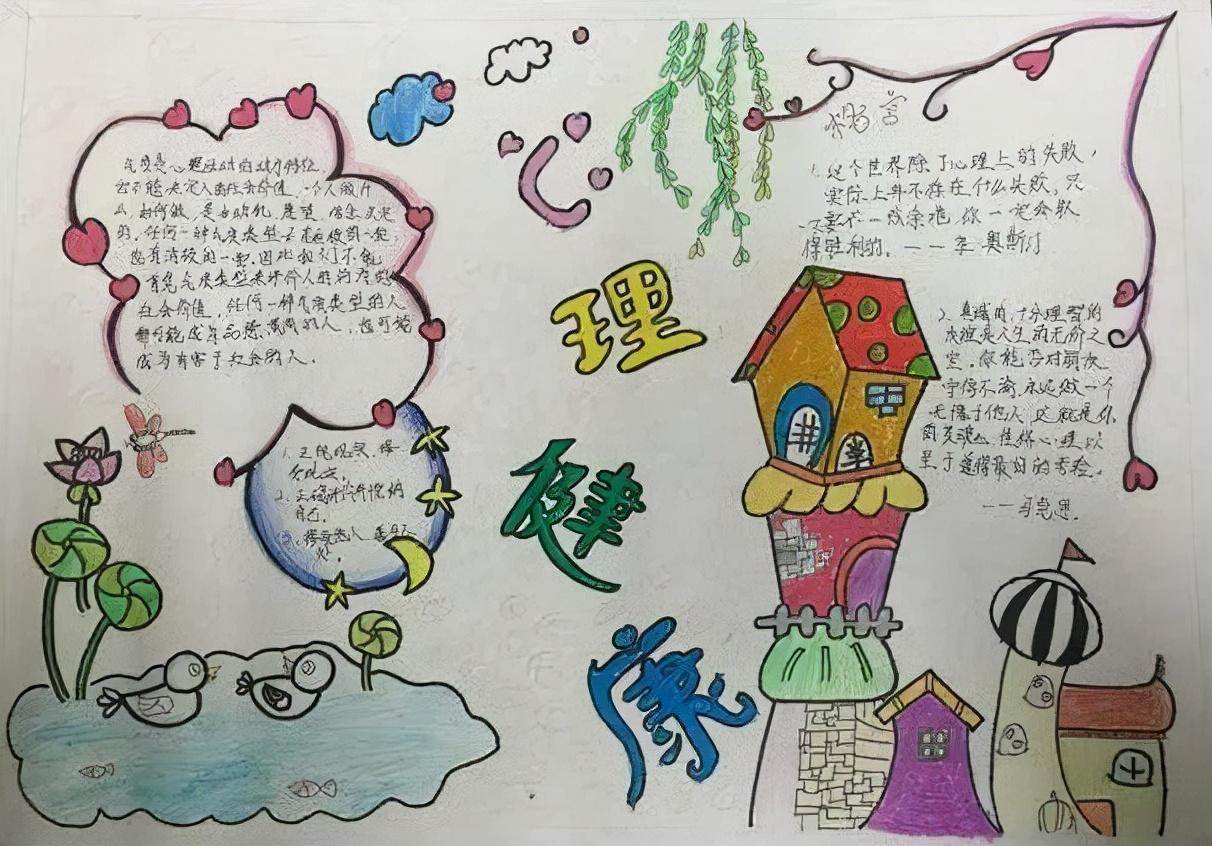 气质是心理活动的动力特征,
它不能决定人的社会价值,一个人做什
么,如何做,是由动机、愿望、信念决定
的,任何一种气质类型都有积极的一面,
也有消极的一面,因此我们不能
气质类型来评价人的
社会价值,任何一种气质类型的人
都可能成为品德高尚的人,也可能
成为有害于社会的人.
1.正视现实,
2.正确评价
自己.
3.
心
理
健
康
格言
1.这个世界除了心理上的失败,
实际上并不存在什么失败,只
要不一败涂地,你一定会取
得胜利的。——亨·奥斯汀
2.真诚的、十分理智的
友谊是人生的无价之
宝。你能否对朋友
守信不渝,永远做一个
无愧于他人,这就是你
的灵魂、性格、心理以
至于道德最好的考验。
——马克思.